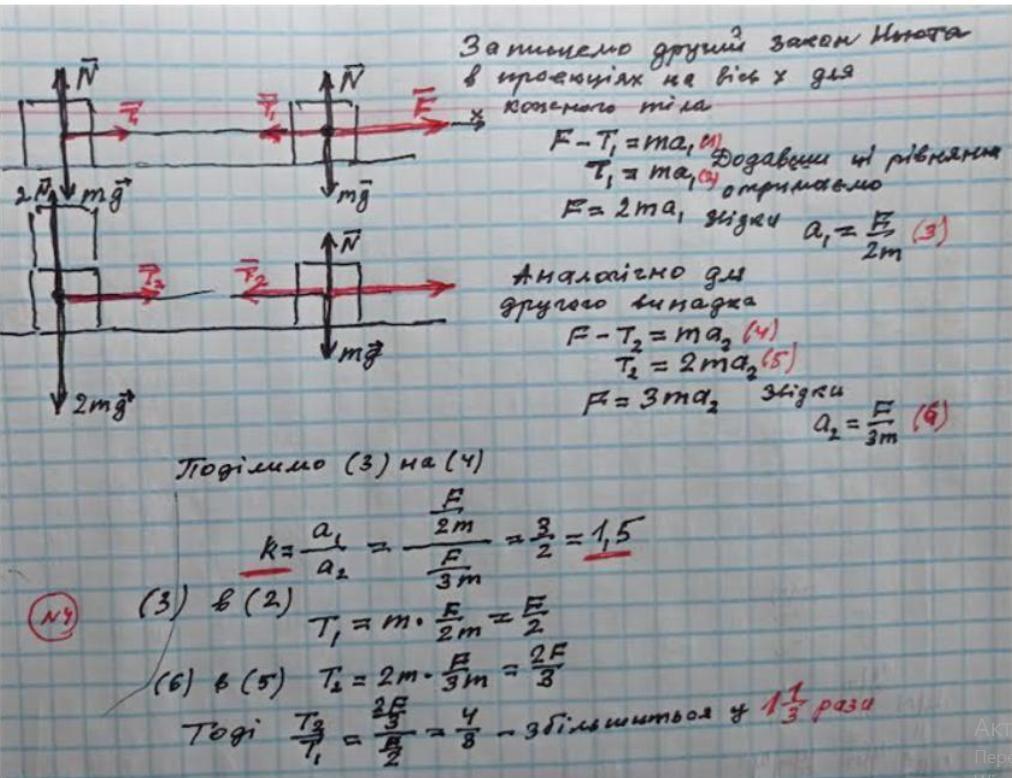 Запишемо другий закон Нюта
в проекціях на вісь x для
кожного тіла
N⃗ N⃗
T⃗₁ T⃗₁ F⃗ x
mg⃗ mg⃗
F - T₁ = ma₁ (1)
T₁ = ma₁ (2) Додавши ці рівняння
отримаємо
F = 2ma₁ звідки a₁ = F/2m (3)
2N⃗ N⃗
T⃗₂ T⃗₂
2mg⃗ mg⃗
Аналогічно для
другого випадка
F - T₂ = ma₂ (4)
T₂ = 2ma₂ (5)
F = 3ma₂ звідки
a₂ = F/3m (6)
Поділимо (3) на (4)
k = a₁/a₂ = (F/2m)/(F/3m) = 3/2 = 1,5
N4
(3) в (2) T₁ = m · F/2m = F/2
(6) в (5) T₂ = 2m · F/3m = 2F/3
Тоді T₂/T₁ = (2F/3)/(F/2) = 4/3 - збільшиться у 1 1/3 рази